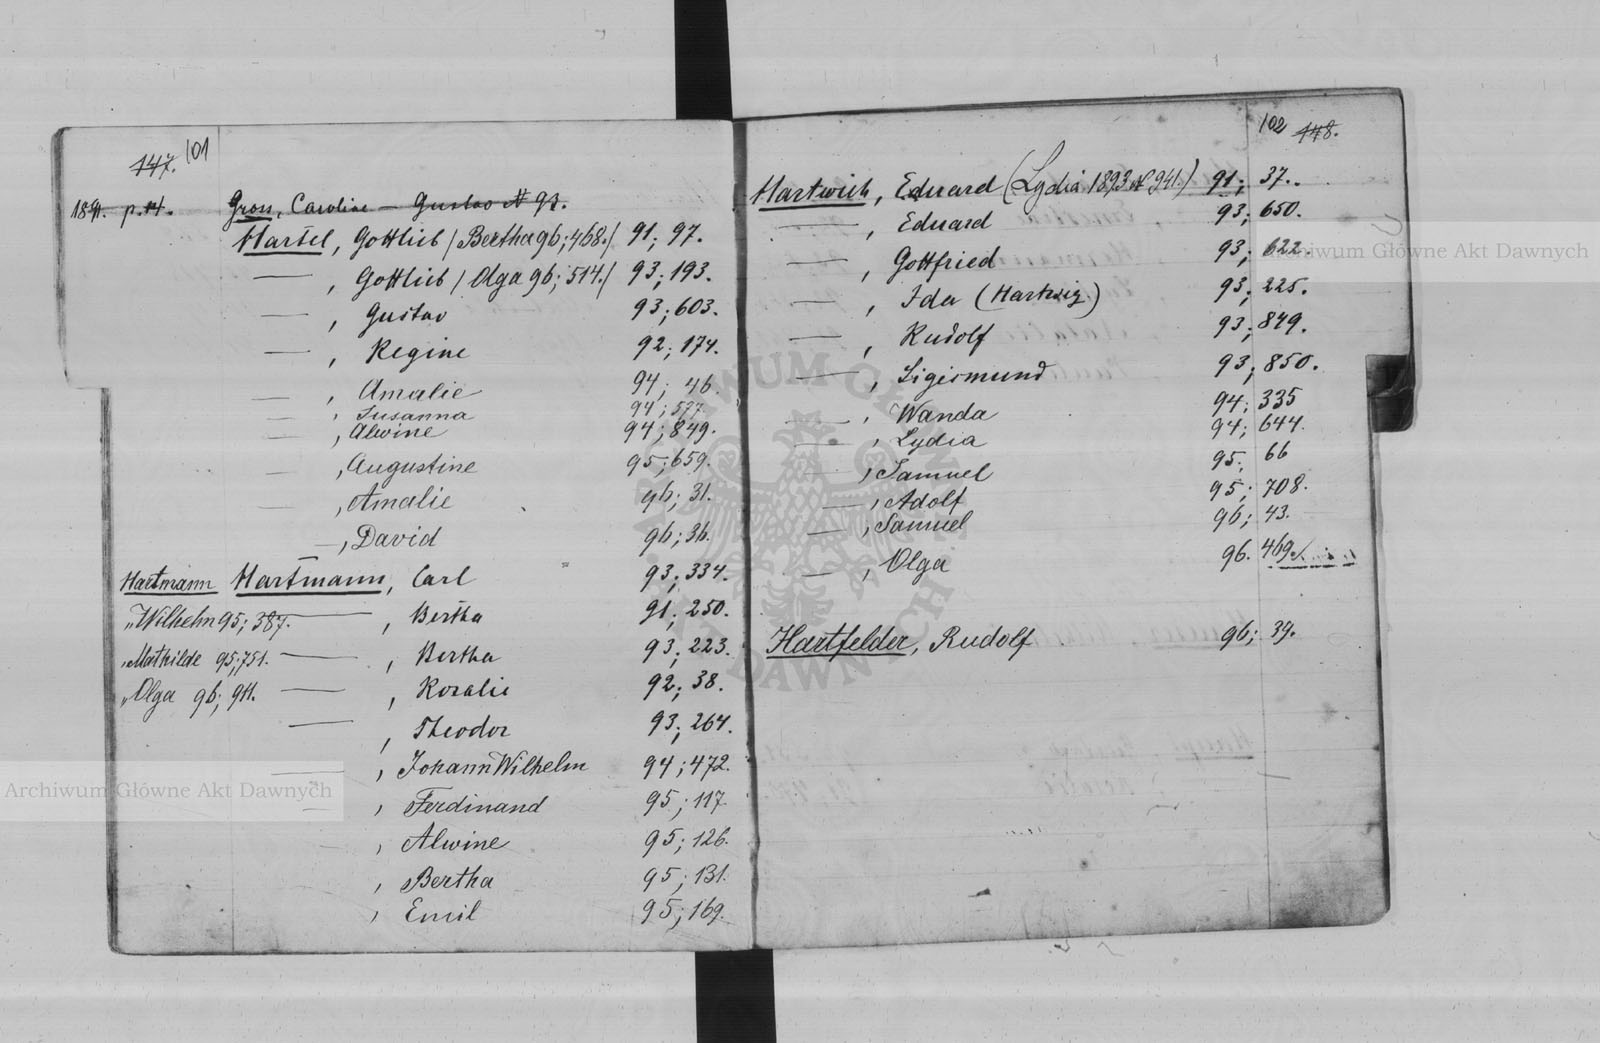 147. 101
1891. p. 14. Gross, Caroline — Gustav № 97.
Hartel, Gottlieb / Bertha 96; 468. / 91; 97.
— , Gottlieb / Olga 96; 514. / 93; 193.
— , Gustav 93; 603.
— , Regine 92; 174.
— , Amalie 94; 46.
— , Susanna 94; 577.
— , Alwine 94; 849.
— , Augustine 95; 659.
— , Amalie 96; 31.
— , David 96; 36.
Hartmann Hartmann, Carl 93; 334.
„ Wilhelm 95; 387. — , Bertha 91; 250.
„ Mathilde 95; 751. — , Bertha 93; 223.
„ Olga 96; 911. — , Rosalie 92; 38.
— , Theodor 93; 264.
— , Johann Wilhelm 94; 472.
— , Ferdinand 95; 117.
, Alwine 95; 126.
, Bertha 95; 131.
, Emil 95; 169.
102 148.
Hartwich, Eduard (Lydia 1893 № 941.) 91; 37.
— , Eduard 93; 650.
— , Gottfried 93; 622.
— , Ida (Hartwig.) 93; 225.
— , Rudolf 93; 849.
— , Sigismund 93; 850.
— , Wanda 94; 335
— , Lydia 94; 644.
— , Samuel 95; 66
— , Adolf 95; 708.
— , Samuel 96; 43.
— , Olga 96. 469.
Hartfelder, Rudolf 96; 39.
Archiwum Główne Akt Dawnych
Archiwum Główne Akt Dawnych